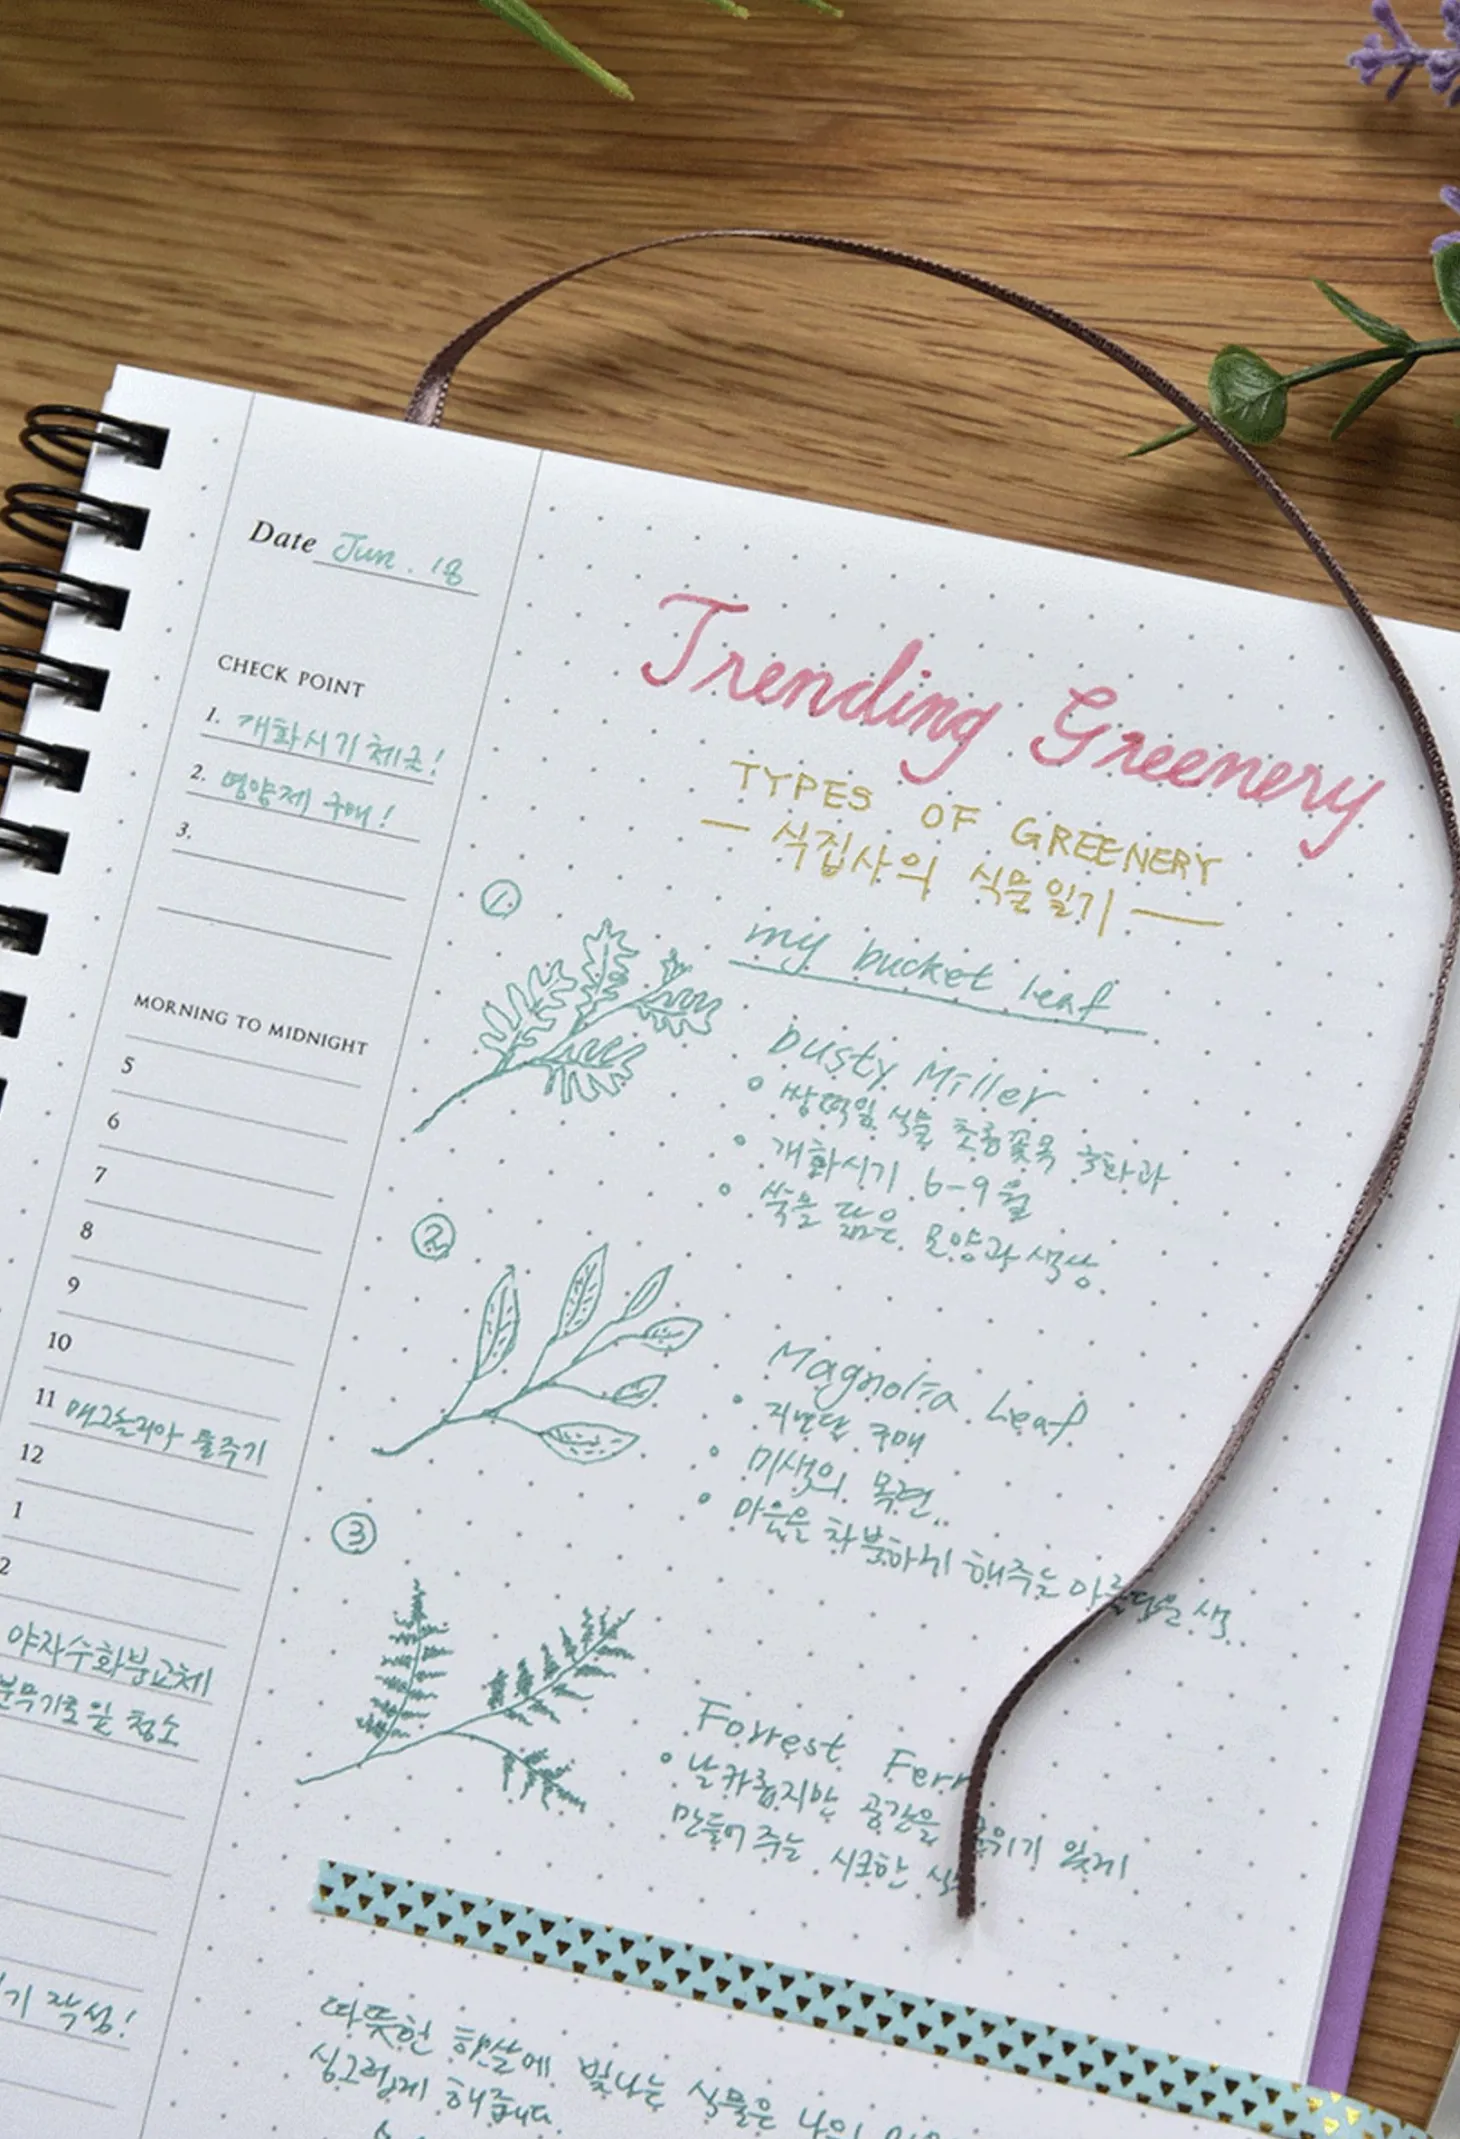 Date Jun. 18
CHECK POINT
1. 개화시기 체크!
2. 영양제 구매!
3.
MORNING TO MIDNIGHT
5
6
7
8
9
10
11 매그놀리아 물주기
12
1
2
야자수화분교체
분무기로 잎 청소
기 작성!
Trending Greenery
TYPES OF GREENERY
— 식집사의 식물일기 —
my bucket leaf
1.
Dusty Miller
쌍떡잎 식물 초롱꽃목 국화과
개화시기 6-9월
쑥을 닮은 모양과 색상
2.
Magnolia Leaf
지난달 구매
미색의 목련..
마음을 차분하게 해주는 아름다운 색..
3
Forrest Fern
날카롭지만 공간을 분위기 있게
만들어 주는 시크한
따뜻한 햇살에 빛나는 식물은 나의
싱그럽게 해줍니다